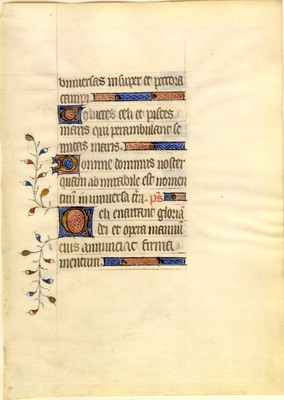 vniversas insuper et pecora
campi
Volucres celi et pisces
maris qui perambulant se
mitas maris.
Domine dominus noster
quam admirabile est nomen
tuū in universa tr̄a. ps̄
Celi enarrant gloriā
dei et opera manuū
eius annunciat firma
mentum.